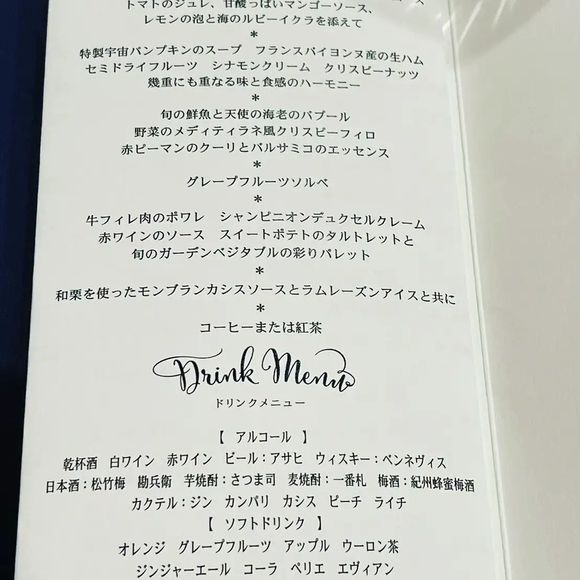 トマトのジュレ、甘酸っぱいマンゴーソース、
レモンの泡と海のルビーイクラを添えて
*
特製宇宙パンプキンのスープ　フランスバイヨンヌ産の生ハム
セミドライフルーツ　シナモンクリーム　クリスピーナッツ
幾重にも重なる味と食感のハーモニー
*
旬の鮮魚と天使の海老のバプール
野菜のメディティラネ風クリスピーフィロ
赤ピーマンのクーリとバルサミコのエッセンス
*
グレープフルーツソルベ
*
牛フィレ肉のポワレ　シャンピニオンデュクセルクレーム
赤ワインのソース　スイートポテトのタルトレットと
旬のガーデンベジタブルの彩りパレット
*
和栗を使ったモンブランカシスソースとラムレーズンアイスと共に
*
コーヒーまたは紅茶
Drink Menu
ドリンクメニュー
【 アルコール 】
乾杯酒　白ワイン　赤ワイン　ビール：アサヒ　ウィスキー：ベンネヴィス
日本酒：松竹梅　勘兵衛　芋焼酎：さつま司　麦焼酎：一番札　梅酒：紀州蜂蜜梅酒
カクテル：ジン　カンパリ　カシス　ピーチ　ライチ
【 ソフトドリンク 】
オレンジ　グレープフルーツ　アップル　ウーロン茶
ジンジャーエール　コーラ　ペリエ　エヴィアン